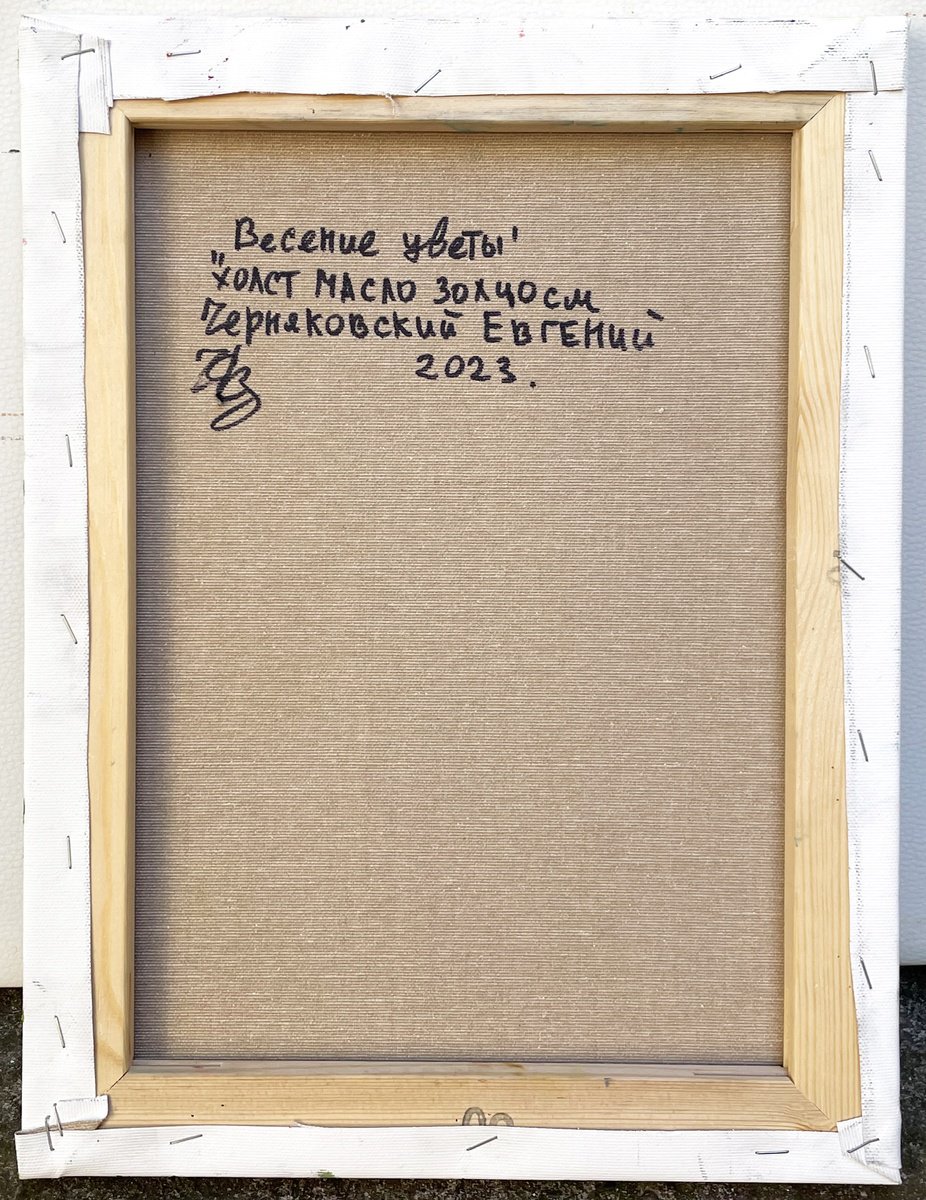 „Весение цветы"
холст масло 30х40см
Черняковский Евгений
2023.